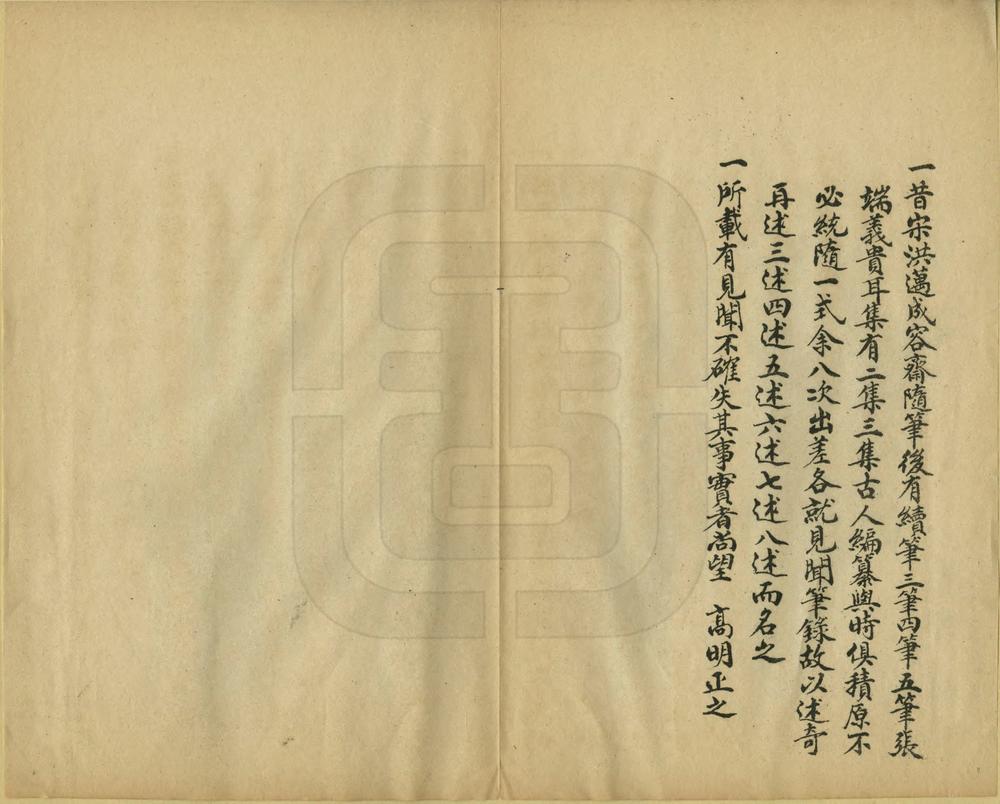 一昔宋洪邁成容齋隨筆後有續筆三筆四筆五筆張
端義貴耳集有二集三集古人編纂與時俱積原不
必統隨一式余八次出差各就見聞筆錄故以述奇
再述三述四述五述六述七述八述而名之
一所載有見聞不確失其事實者尚望　高明正之